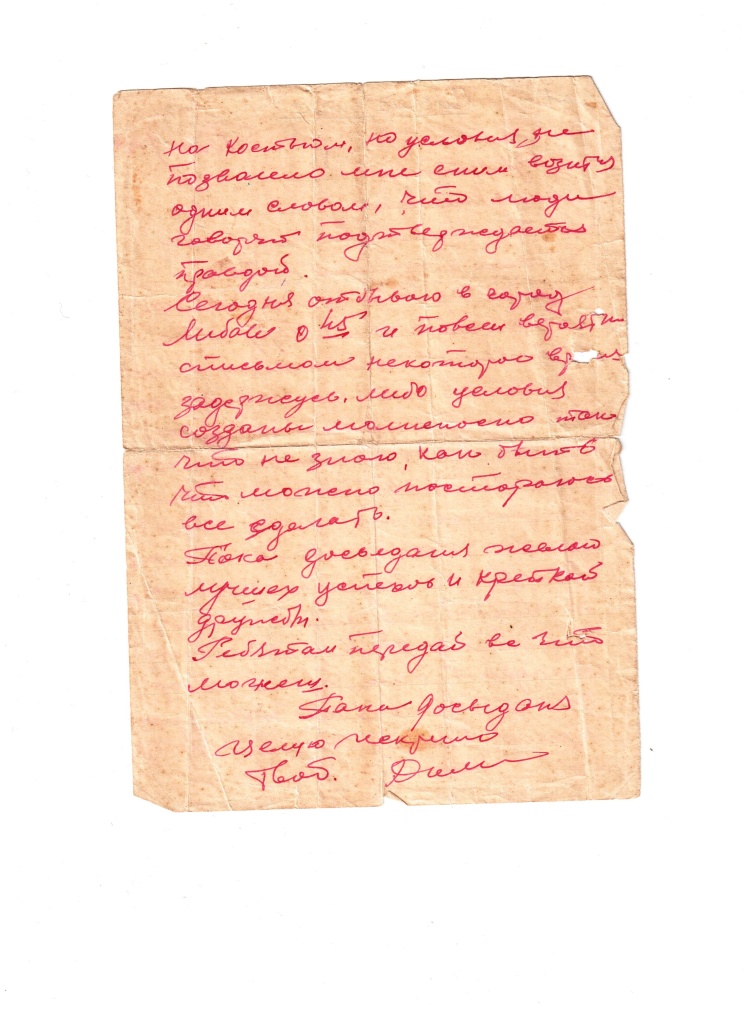 на костюм, но условия не
позволено мне с ним возится
одним словом, что люди
говорят подтверждается
правдой.
Сегодня отбываю в город
Либаве о 45 и повсей вероятн
письмом некоторое вр
задержусь, либо условия
созданы молненосно так
что не знаю, как быть
что можно постараюсь
все сделать.
Пока досвидания желаю
лучшех успехов и крепкой
дружбы.
Ребятам передай все что
можеш.
Пока досвидания
целую искрино
Твоб. Дима